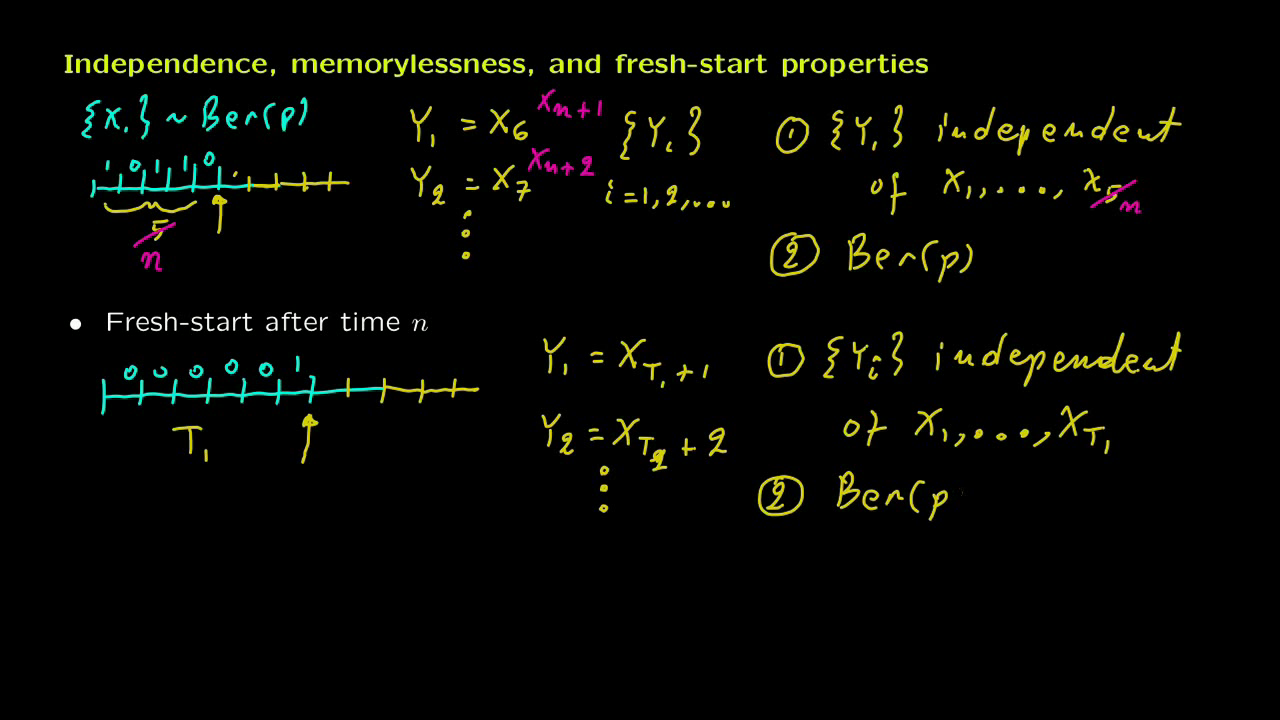 Independence, memorylessness, and fresh-start properties
{X.} ~ Ber(p)
1 0 1 1 0
5
n
Y₁ = X₆ Xₙ₊₁
Y₂ = X₇ Xₙ₊₂
{Yᵢ}
i = 1, 2, ...
① {Yᵢ} independent
of X₁, ..., X₅ n
② Ber(p)
• Fresh-start after time n
0 0 0 0 0 1
T₁
Y₁ = X_{T₁ + 1}
Y₂ = X_{T₂ + 2}
① {Yᵢ} independent
of X₁, ..., X_{T₁}
② Ber(p